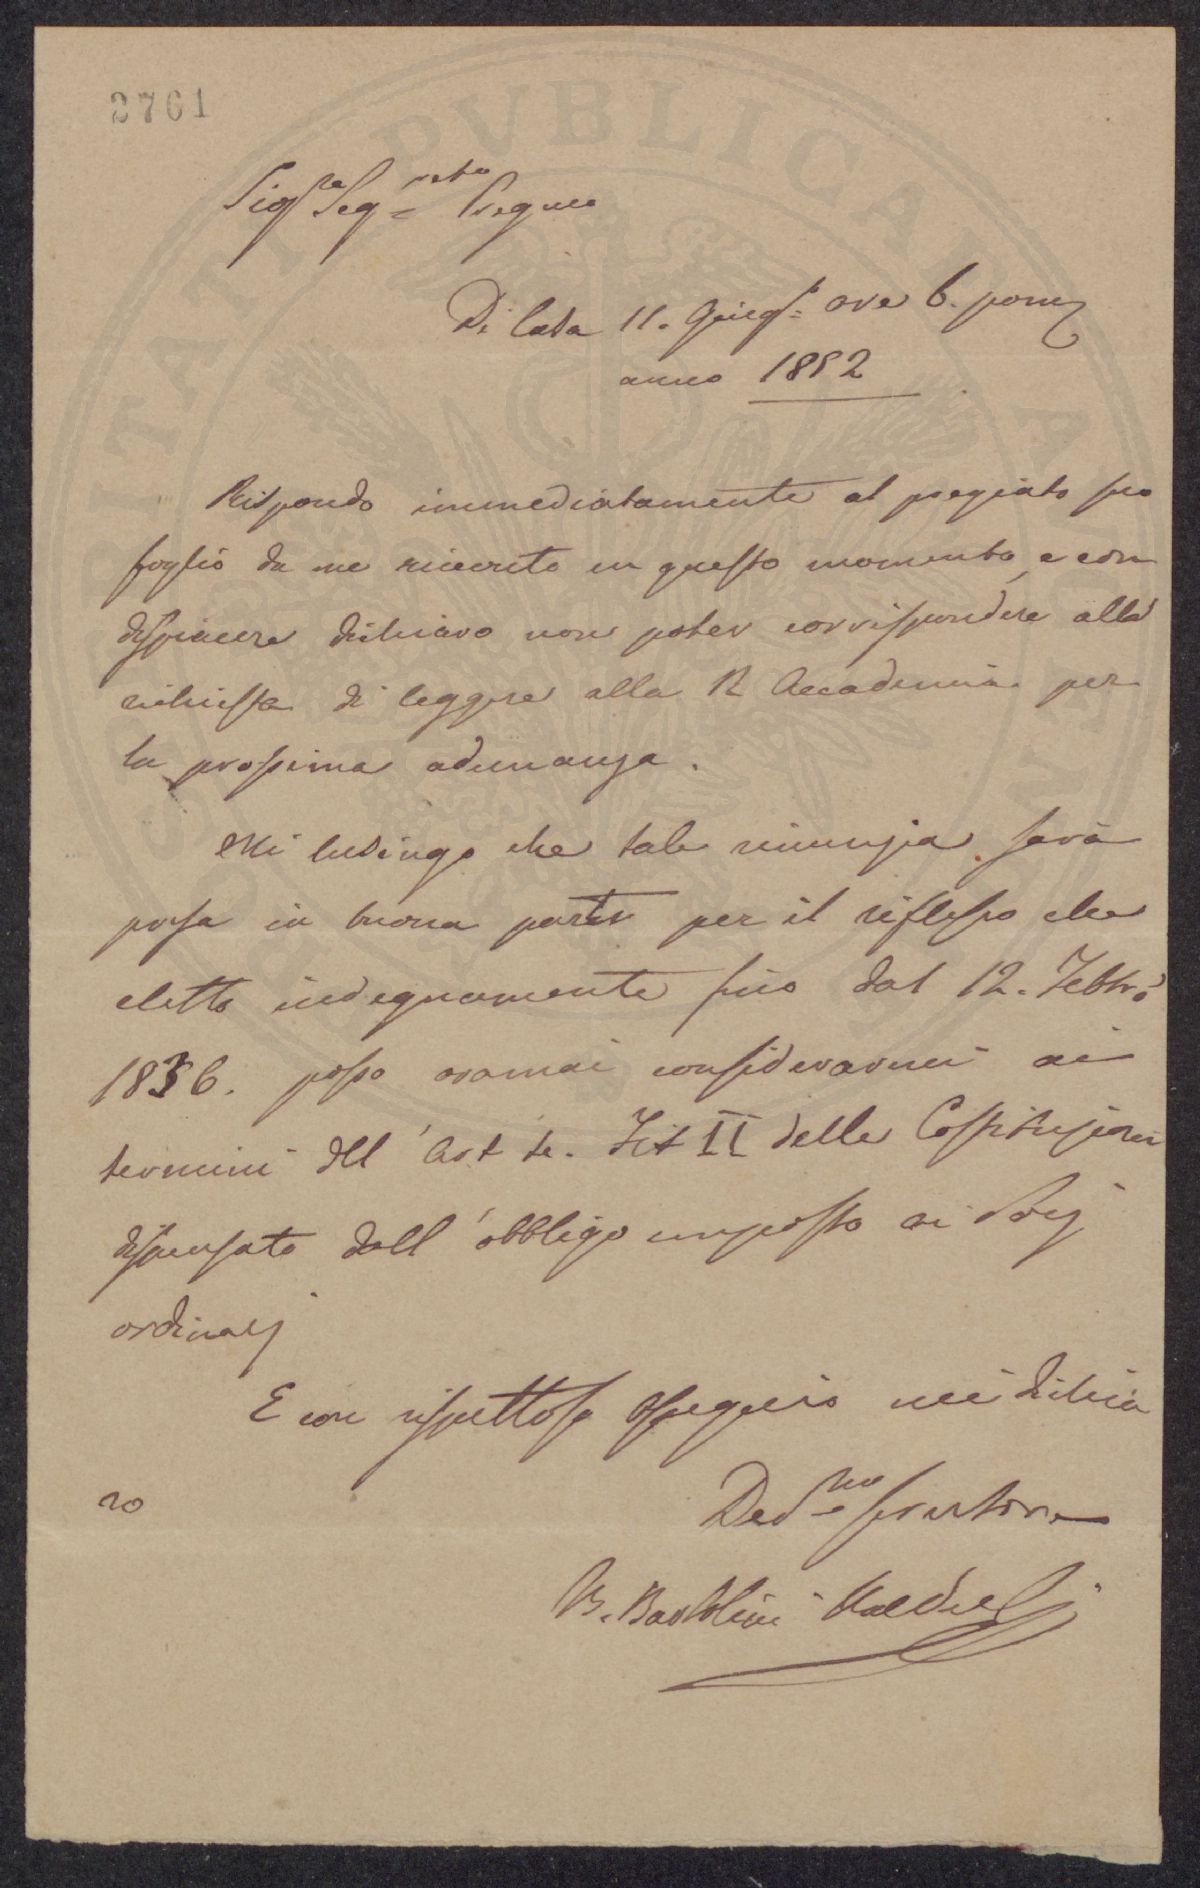 2761
Sigre Segretrio Pregmo
Di Casa 11. Giugo ore 6. pom
anno 1852
Rispondo immediatamente al pregiato suo
foglio da me ricevuto in questo momento, e con
dispiacere dichiaro non poter corrispondere alla
richiesta di leggere alla R Accademia per
la prossima adunanza.
Mi lusingo che tale rinunzia sarà
presa in buona parte per il riflesso che
eletto indegnamente fino dal 12. Febbro
1836. posso oramai considerarmi ai
termini dell' Art Tit II delle Costituzioni
dispensato dall' obbligo imposto ai Socj
ordinarj
E con rispettoso ossequio mi dichia
ro
Devmo servitore
B. Bartolini Baldelli
PUBLICAE